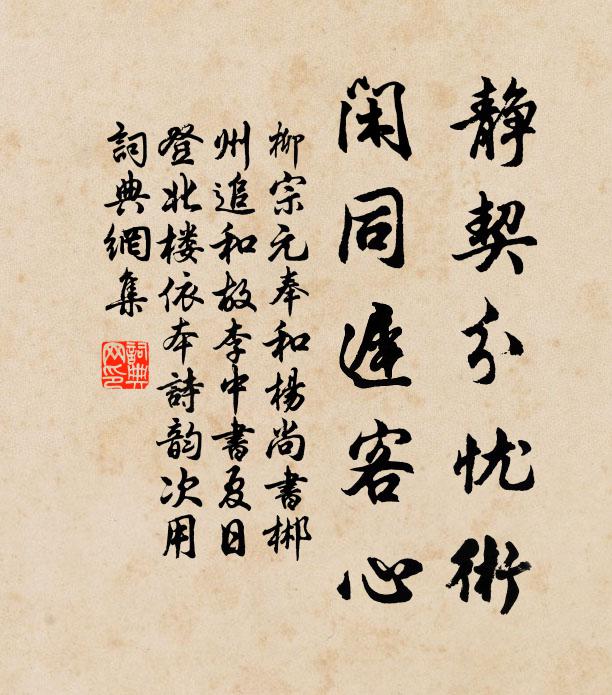 静契分忧術
闲同遅客心
柳宗元奉和楊尚書郴
州追和故李中書夏日
登北楼依本詩韵次用
詞典網集
詞典
网印